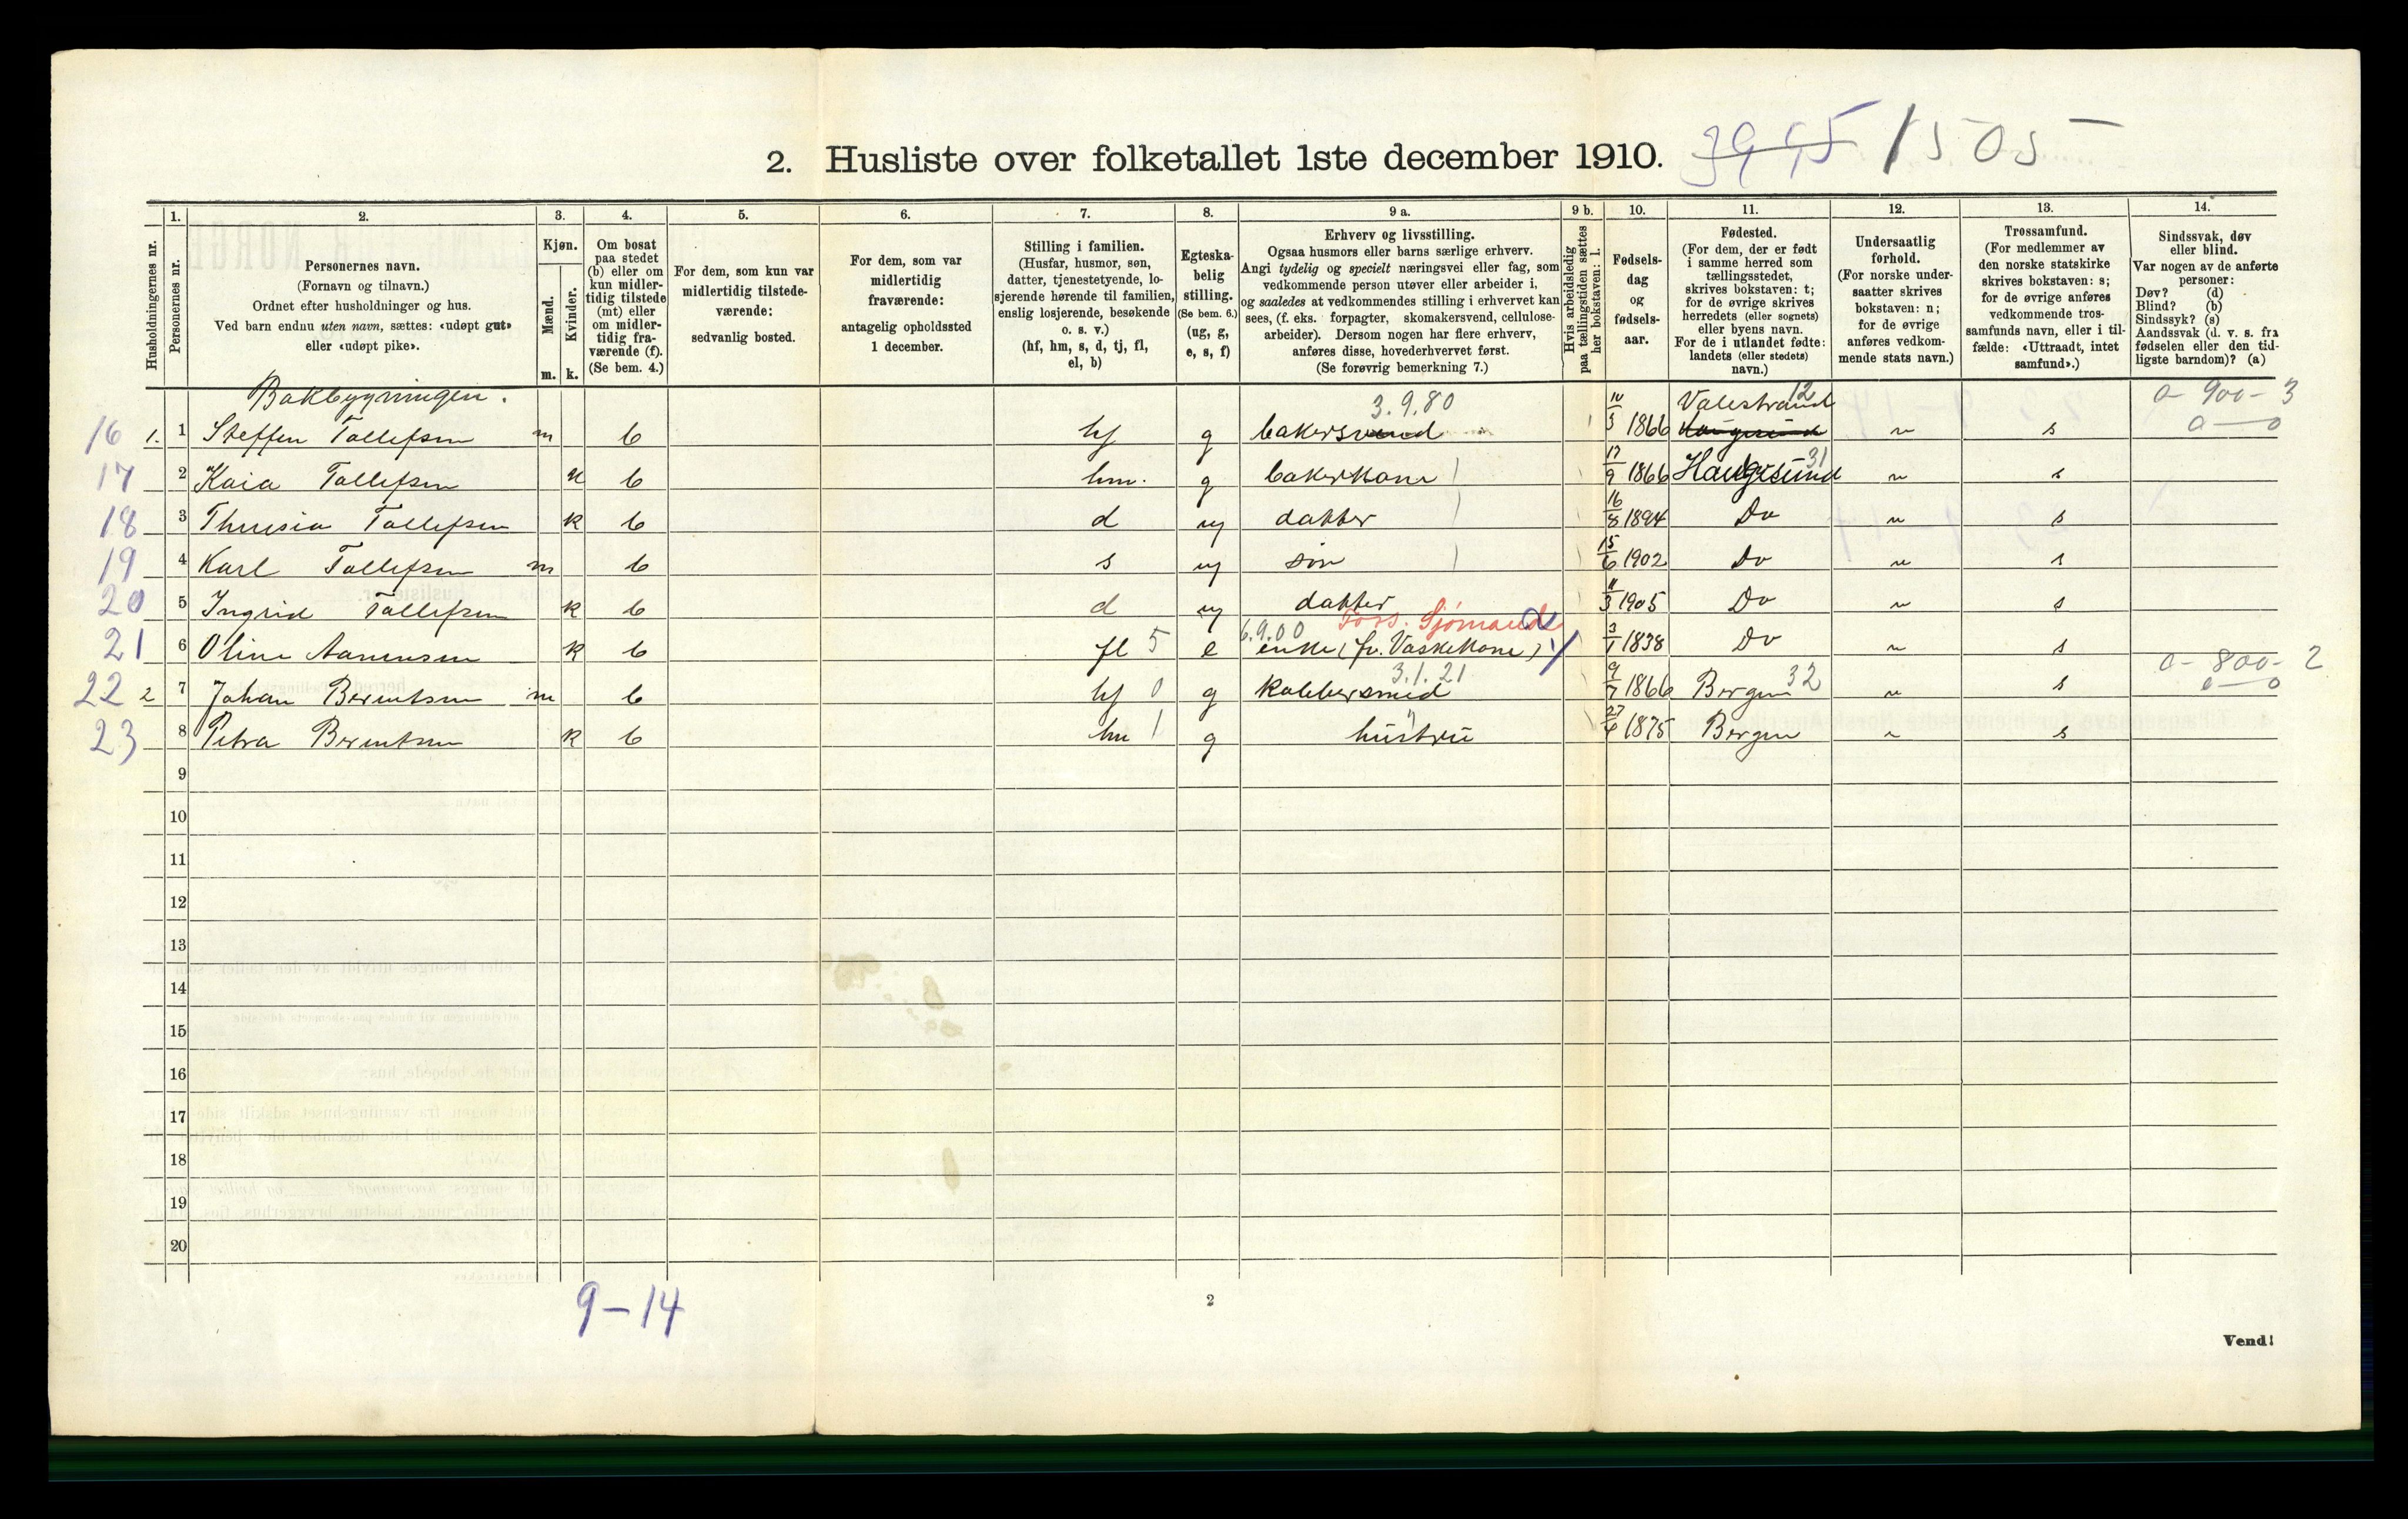 2. Husliste over folketallet 1ste december 1910. 3995 1505
1. 2. 3. 4. 5. 6. 7. 8. 9 a. 9 b. 10. 11. 12. 13. 14.
Husholdningernes nr.
Personernes nr.
Personernes navn.
(Fornavn og tilnavn.)
Ordnet efter husholdninger og hus.
Ved barn endnu uten navn, sættes: «udøpt gut»
eller «udøpt pike».
Kjøn.
Mænd.
Kvinder.
m. k.
Om bosat
paa stedet
(b) eller om
kun midler-
tidig tilstede
(mt) eller
om midler-
tidig fra-
værende (f).
(Se bem. 4.)
For dem, som kun var
midlertidig tilstede-
værende:
sedvanlig bosted.
For dem, som var
midlertidig
fraværende:
antagelig opholdssted
1 december.
Stilling i familien.
(Husfar, husmor, søn,
datter, tjenestetyende, lo-
sjerende hørende til familien,
enslig losjerende, besøkende
o. s. v.)
(hf, hm, s, d, tj, fl,
el, b)
Egteska-
belig
stilling.
(Se bem. 6.)
(ug, g,
e, s, f)
Erhverv og livsstilling.
Ogsaa husmors eller barns særlige erhverv.
Angi tydelig og specielt næringsvei eller fag, som
vedkommende person utøver eller arbeider i,
og saaledes at vedkommendes stilling i erhvervet kan
sees, (f. eks. forpagter, skomakersvend, cellulose-
arbeider). Dersom nogen har flere erhverv,
anføres disse, hovederhvervet først.
(Se forøvrig bemerkning 7.)
Hvis arbeidsledig
paa tællingstiden sættes
her bokstaven: l.
Fødsels-
dag
og
fødsels-
aar.
Fødested.
(For dem, der er født
i samme herred som
tællingsstedet,
skrives bokstaven: t;
for de øvrige skrives
herredets (eller sognets)
eller byens navn.
For de i utlandet fødte:
landets (eller stedets)
navn.)
Undersaatlig
forhold.
(For norske under-
saatter skrives
bokstaven: n;
for de øvrige
anføres vedkom-
mende stats navn.)
Trossamfund.
(For medlemmer av
den norske statskirke
skrives bokstaven: s;
for de øvrige anføres
vedkommende tros-
samfunds navn, eller i til-
fælde: «Uttraadt, intet
samfund».)
Sindssvak, døv
eller blind.
Var nogen av de anførte
personer:
Døv? (d)
Blind? (b)
Sindssyk? (s)
Aandssvak (d. v. s. fra
fødselen eller den tid-
ligste barndom)? (a)
Bakbygningen. 3.9.80 Valestrand 12 0-900-3
16 1. 1 Steffen Tollefsen m b hf g bakersvend 10/3 1866 Haugesund n s 0—0
17 2 Kaia Tollefsen k b hm. g bakerkone 17/9 1866 Haugesund 31 n s
18 3 Thresia Tollefsen k b d ug datter 16/8 1894 Do n s
19 4 Karl Tollefsen m b s ug søn 15/6 1902 Do n s
20 5 Ingrid Tollefsen k b d ug datter 11/3 1905 Do n s
6.9.00 Fors. Sjømand
21 6 Oline Aanensen k b fl 5 e enke (fv. Vaskekone) 3/1 1838 Do n s
3.1.21 0-800-2
22 2 7 Johan Berntsen m b hf 0 g Kobbersmed 9/7 1866 Bergen 32 n s 0—0
23 8 Petra Berntsen k b hm 1 g hustru 27/4 1875 Bergen n s
9
10
11
12
13
14
15
16
17
18
19
20
9-14
2
Vend!